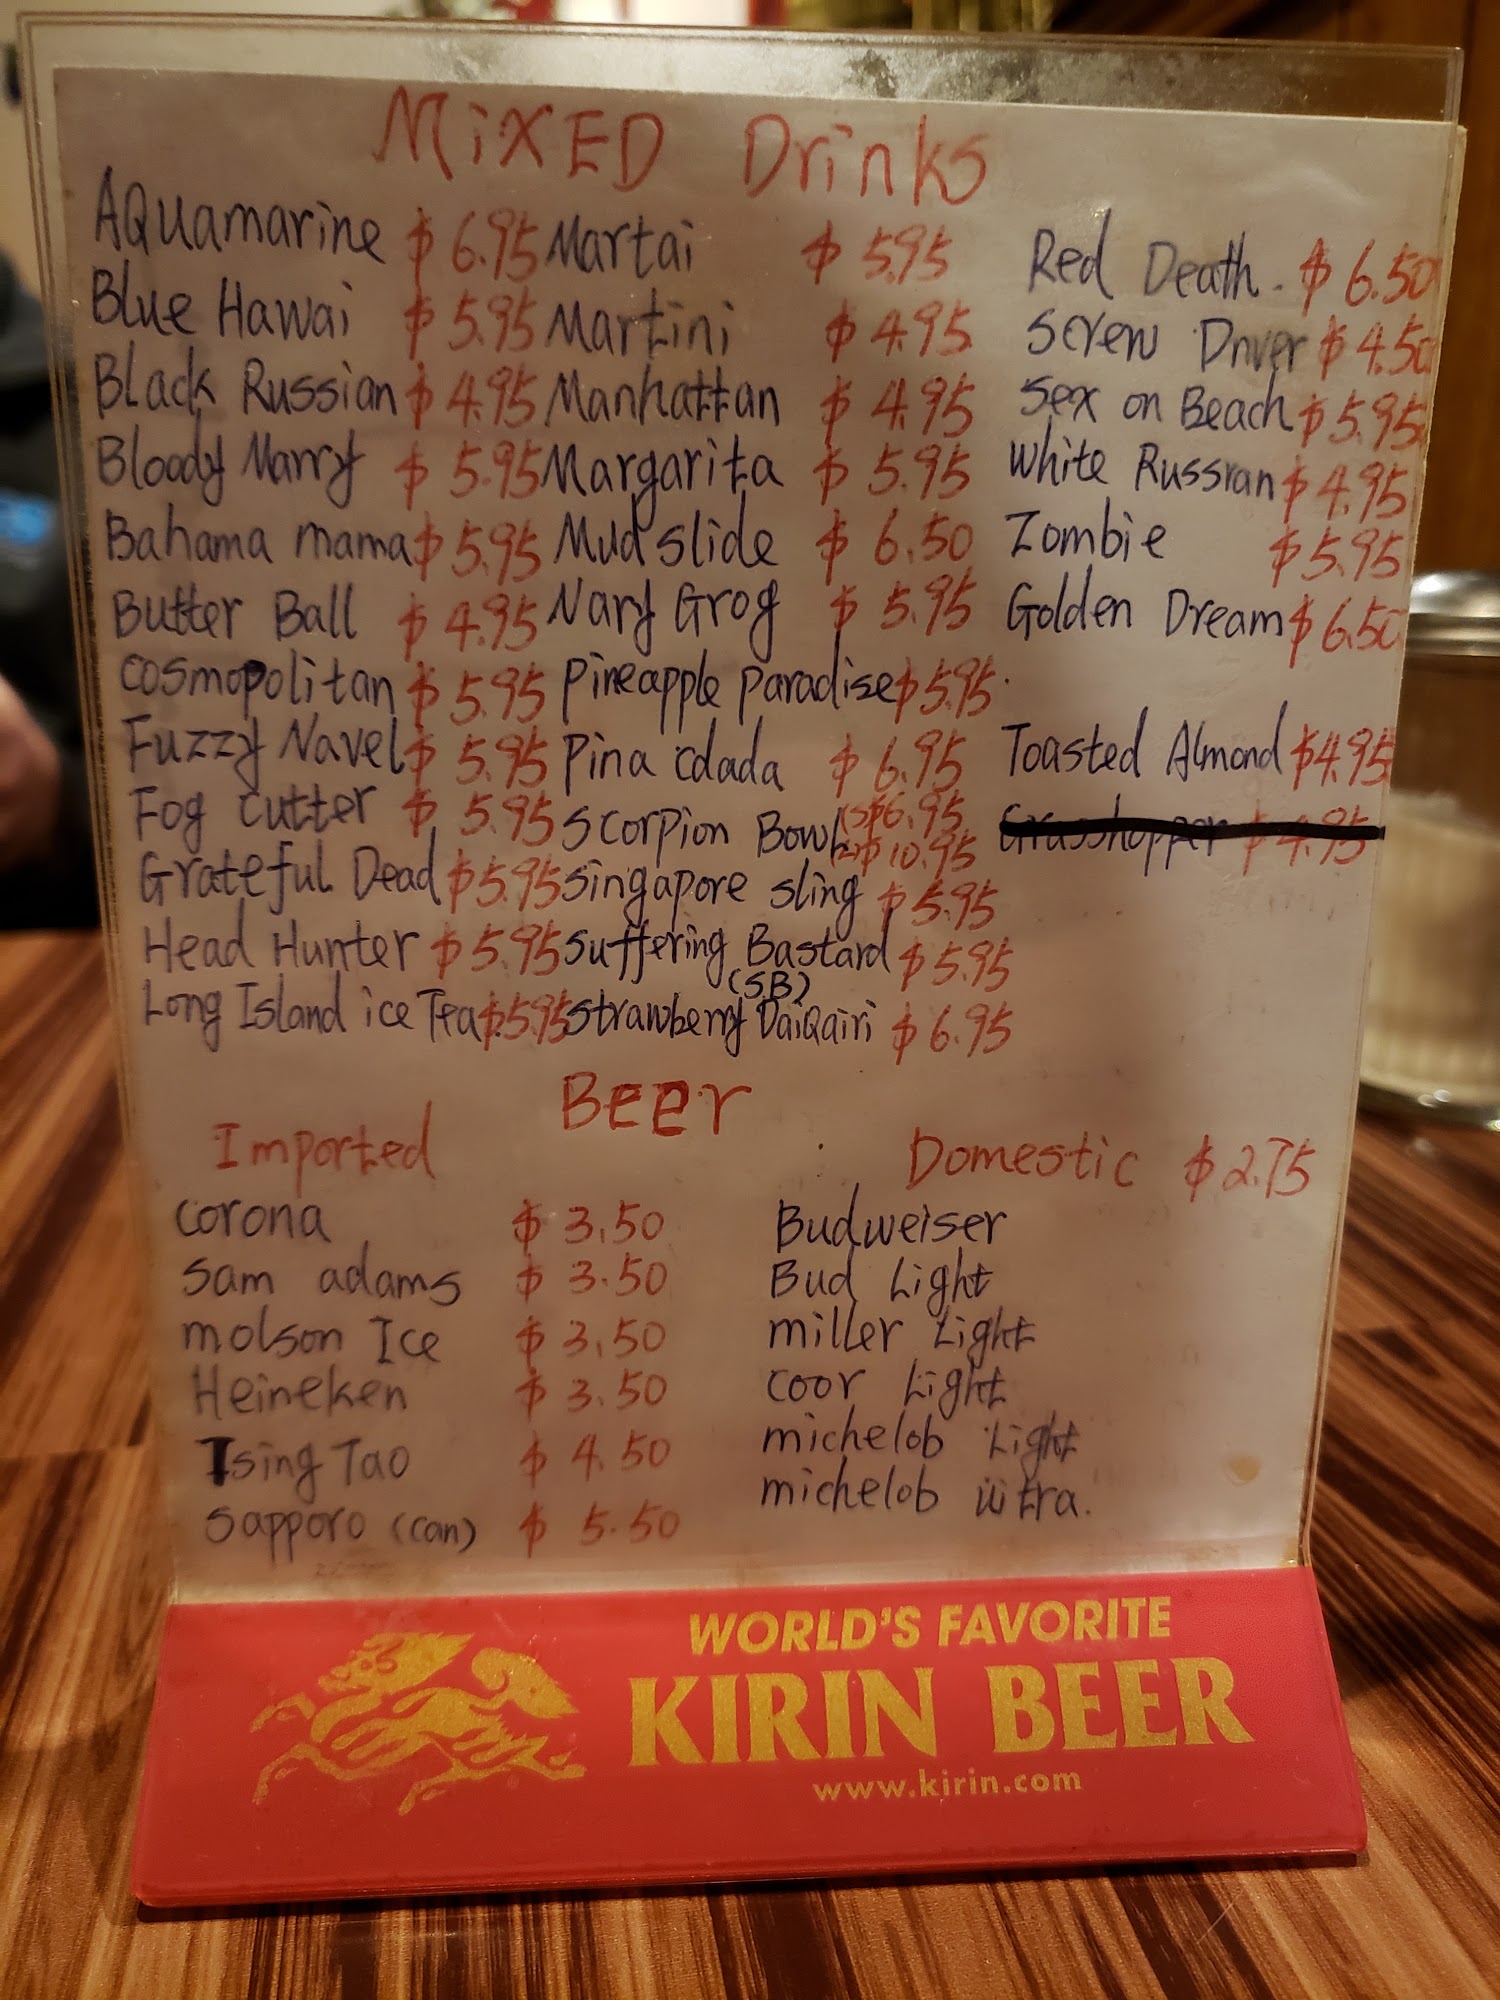 MiXED Drinks
AQuamarine $ 6.95 Martai $ 5.95 Red Death. $ 6.50
Blue Hawai $ 5.95 Martini $ 4.95 Screw Driver $ 4.50
Black Russian $ 4.95 Manhattan $ 4.95 Sex on Beach $ 5.95
Bloody Marry $ 5.95 Margarita $ 5.95 White Russian $ 4.95
Bahama mama $ 5.95 Mud slide $ 6.50 Zombie $ 5.95
Butter Ball $ 4.95 Navy Grog $ 5.95 Golden Dream $ 6.50
Cosmopolitan $ 5.95 Pineapple Paradise $ 5.95
Fuzzy Navel $ 5.95 Pina Colada $ 6.95 Toasted Almond $4.95
Fog Cutter $ 5.95 Scorpion Bowl (S)$6.95 Grasshopper $ 4.95
(2)$ 10.95
Grateful Dead $5.95 Singapore sling $5.95
Head Hunter $5.95 Suffering Bastard $5.95
(SB)
Long Island ice Tea $5.95 Strawberry DaiQairi $ 6.95
BEEr
Imported Domestic $ 2.75
Corona $ 3.50 Budweiser
Sam adams $ 3.50 Bud Light
molson Ice $ 3.50 miller Light
Heineken $ 3.50 Coor Light
Tsing Tao $ 4.50 michelob Light
Sapporo (can) $ 5.50 michelob ultra.
WORLD'S FAVORITE
KIRIN BEER
www.kirin.com